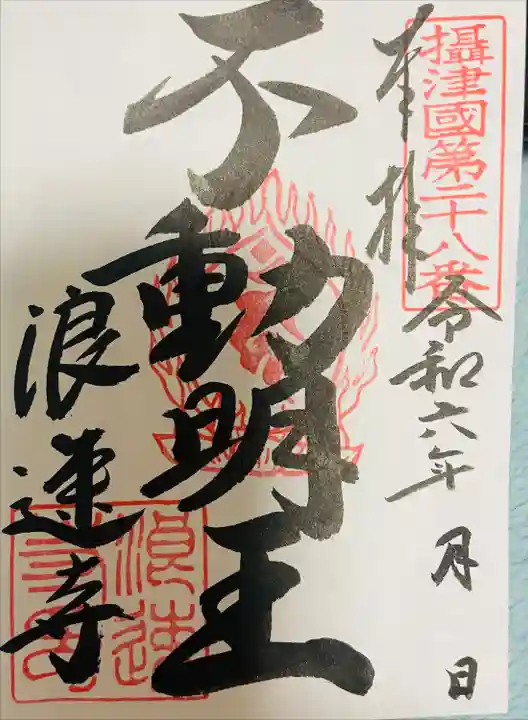 攝津國第二十八番
奉拝
令和六年 月 日
不動明王
浪速寺
浪速